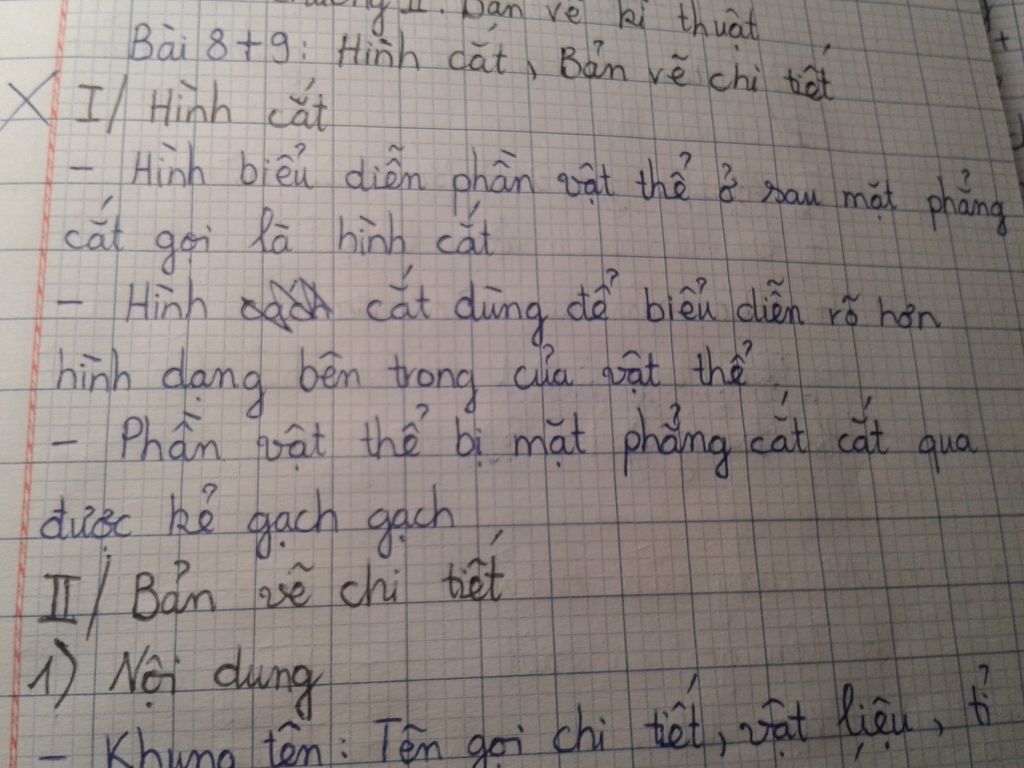 II. Bản vẽ kĩ thuật
Bài 8+9: Hình cắt, Bản vẽ chi tiết
I/ Hình cắt
- Hình biểu diễn phần vật thể ở sau mặt phẳng
cắt gọi là hình cắt
- Hình cắt dùng để biểu diễn rõ hơn
hình dạng bên trong của vật thể
- Phần vật thể bị mặt phẳng cắt cắt qua
được kẻ gạch gạch
II/ Bản vẽ chi tiết
1) Nội dung
- Khung tên: Tên gọi chi tiết, vật liệu, tỉ